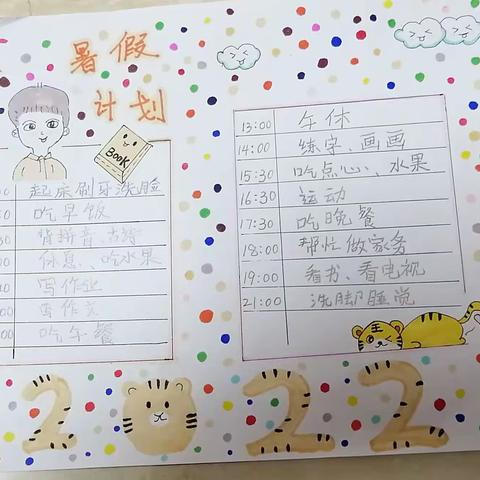 暑假
计划
BOOK
起床刷牙洗脸
吃早饭
背拼音、古诗
休息、吃水果
写作业
写作文
吃午餐
13:00 午休
14:00 练字、画画
15:30 吃点心、水果
16:30 运动
17:30 吃晚餐
18:00 帮忙做家务
19:00 看书、看电视
21:00 洗脚睡觉
王
2022